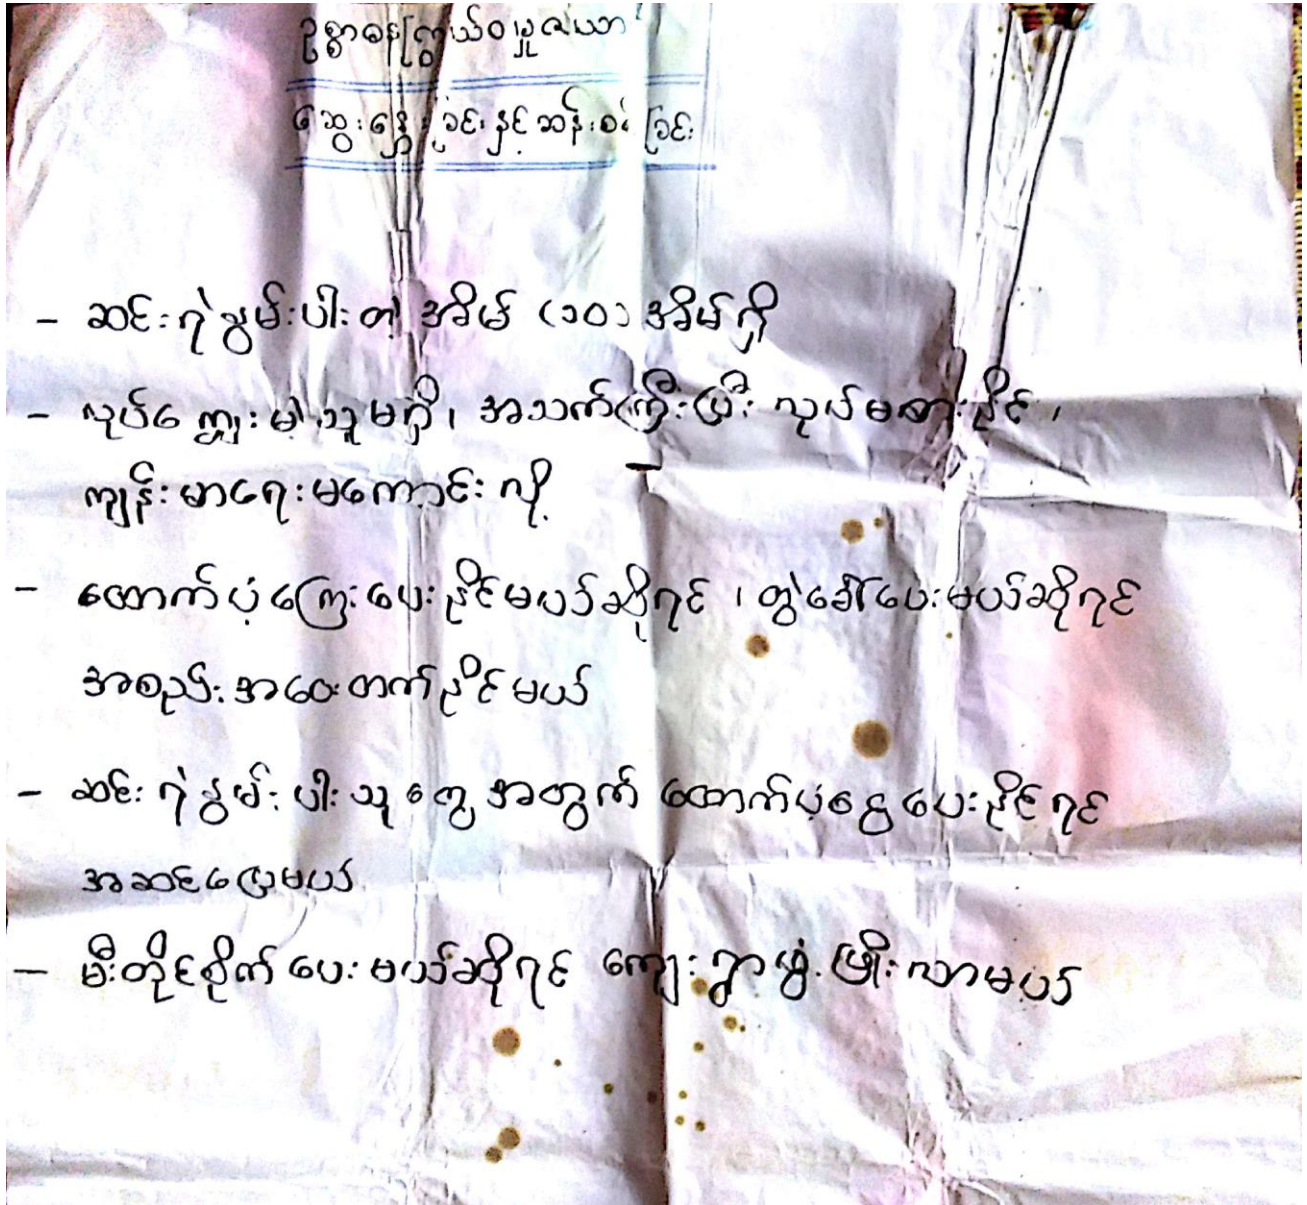 ဥစ္စာဓနကြွယ်ဝမှုဇယား
ဆွေးနွေးခြင်းနှင့်ဆန်းစစ်ခြင်း
- ဆင်းရဲနွမ်းပါးတဲ့ အိမ် (၁၀) အိမ်ရှိ
- လုပ်ကျွေးမဲ့သူမရှိ၊ အသက်ကြီးပြီး လုပ်မစားနိုင်၊
ကျန်းမာရေးမကောင်းလို့
- ထောက်ပံ့ကြေးပေးနိုင်မယ်ဆိုရင်၊ တွဲခေါ်ပေးမယ်ဆိုရင်
အစည်းအဝေးတက်နိုင်မယ်
- ဆင်းရဲနွမ်းပါးသူတွေအတွက် ထောက်ပံ့ငွေပေးနိုင်ရင်
အဆင်ပြေမယ်
- မီးတိုင်စိုက်ပေးမယ်ဆိုရင် ကျေးရွာဖွံ့ဖြိုးလာမယ်